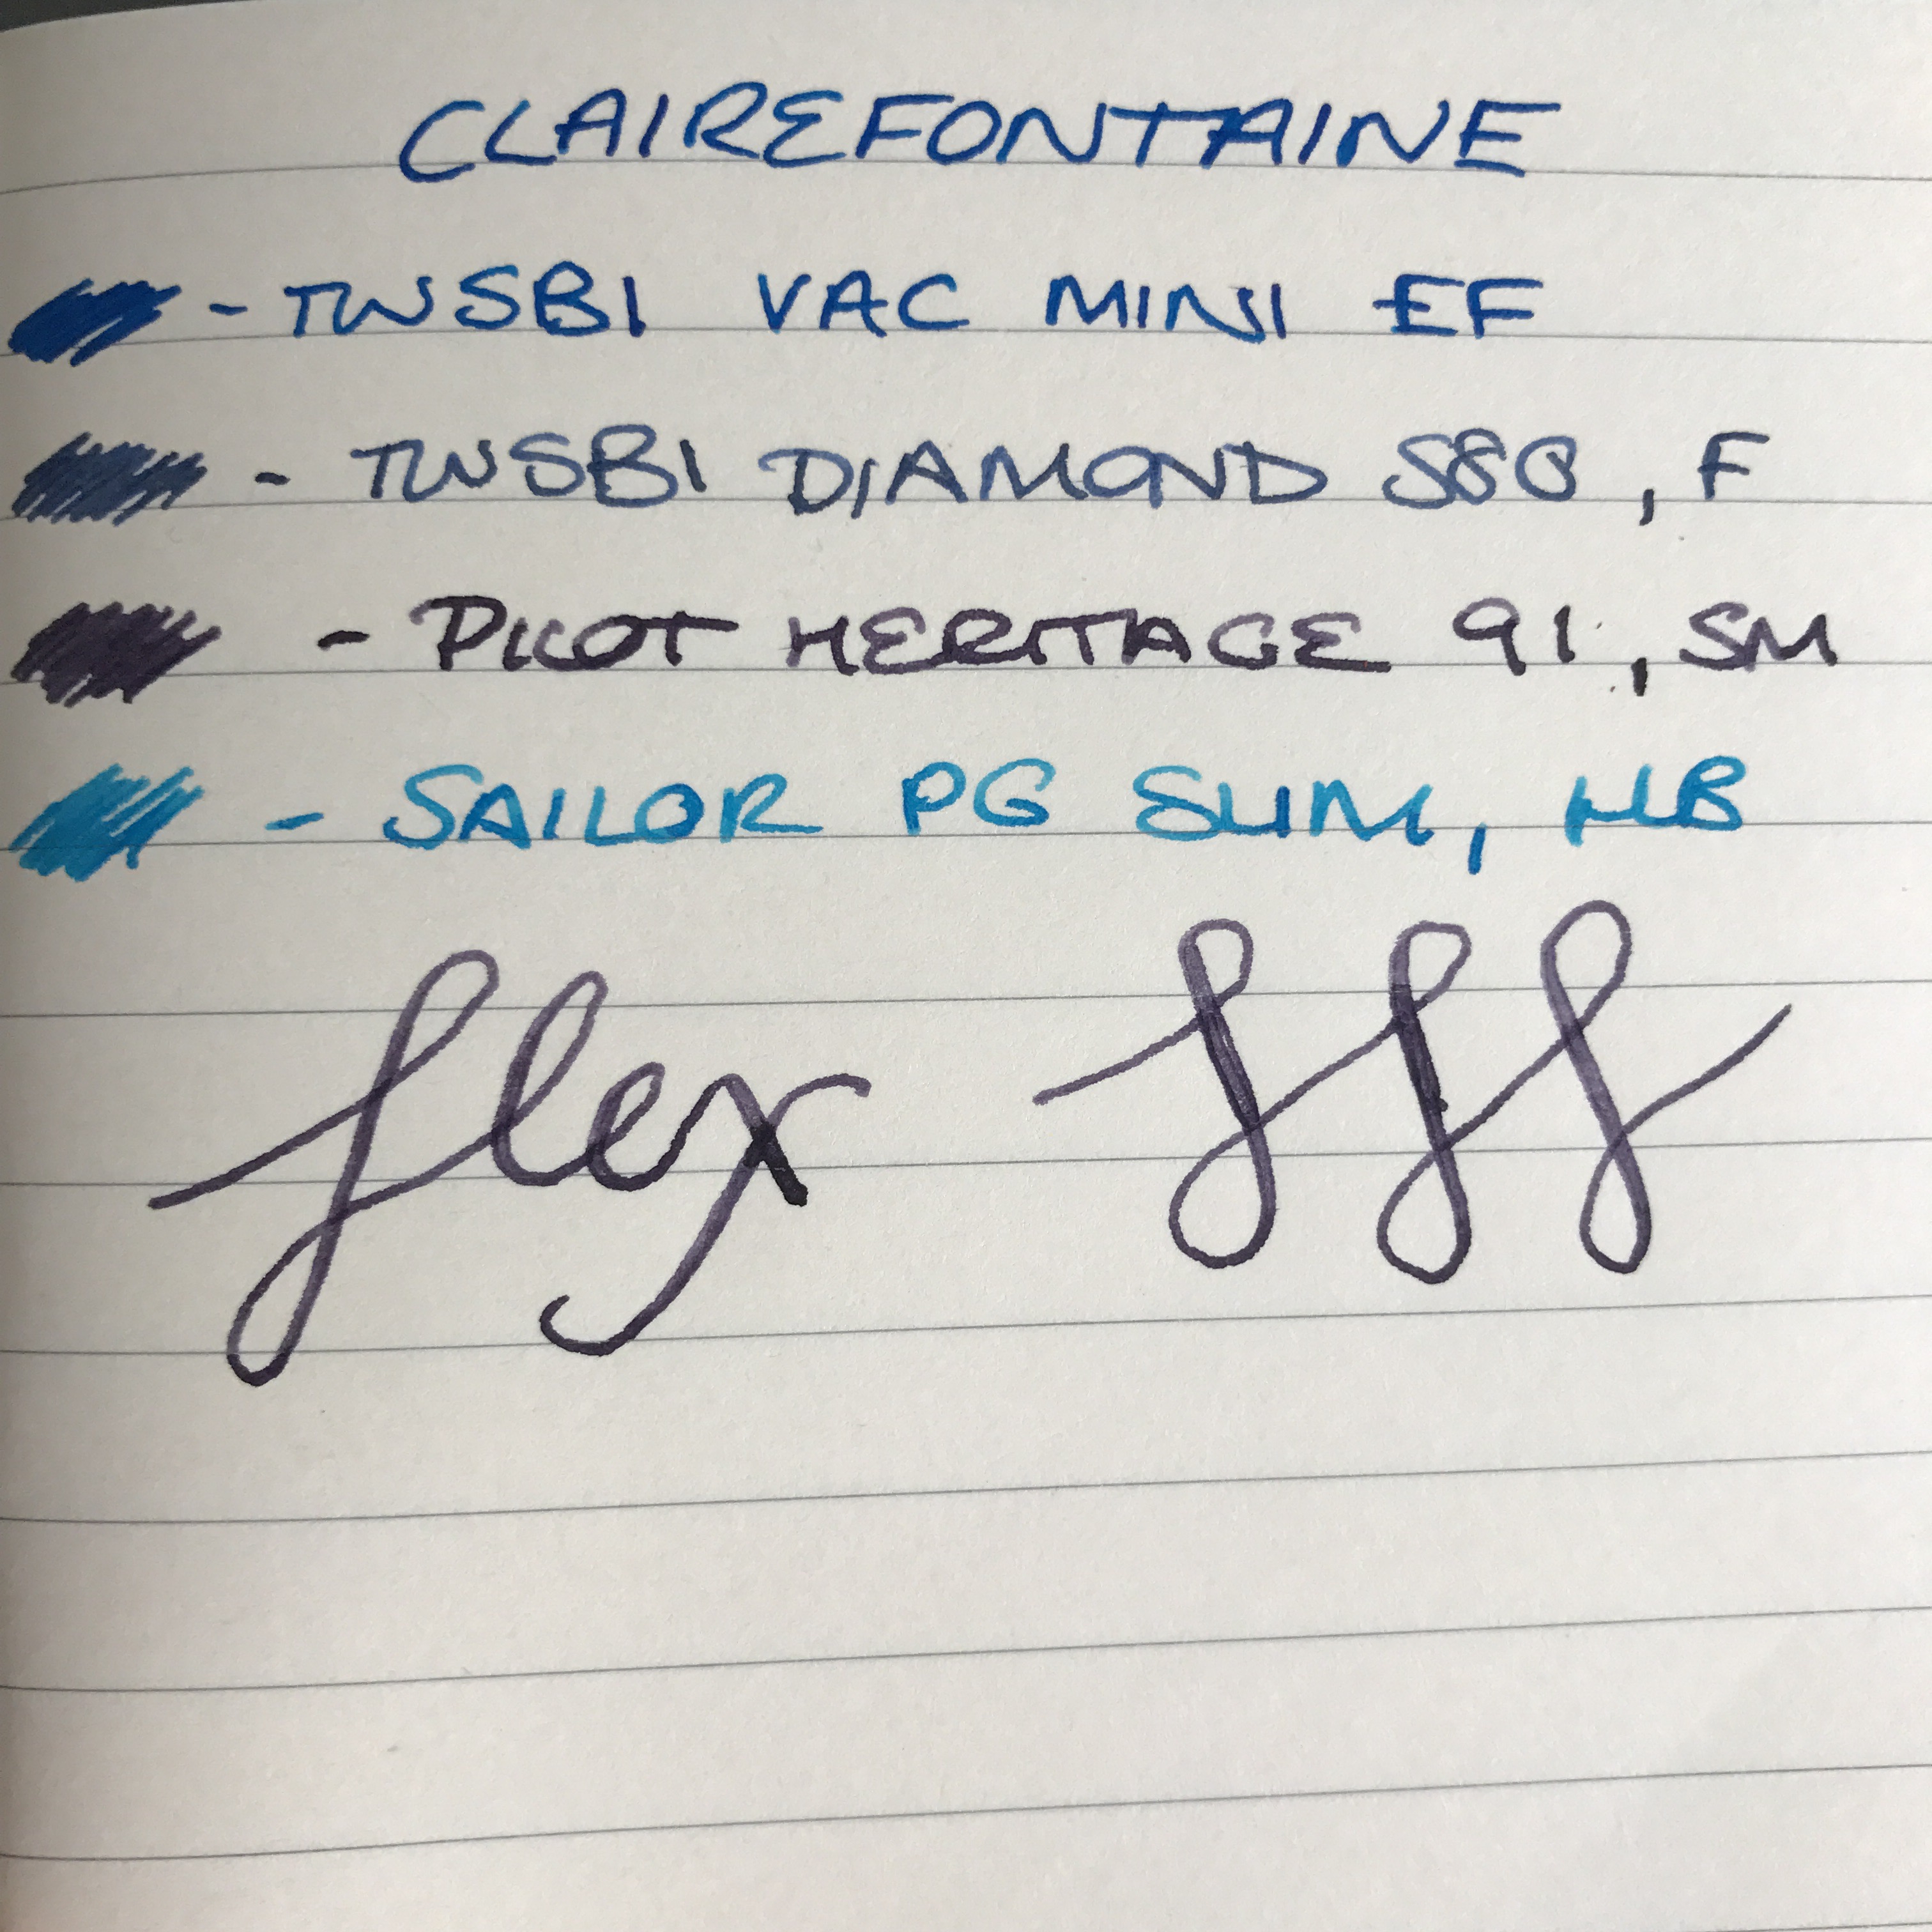 CLAIREFONTAINE
- TWSBI VAC MINI EF
- TWSBI DIAMOND 580, F
- PILOT HERITAGE 91, SM
- SAILOR PG SLIM, HB
flex fff